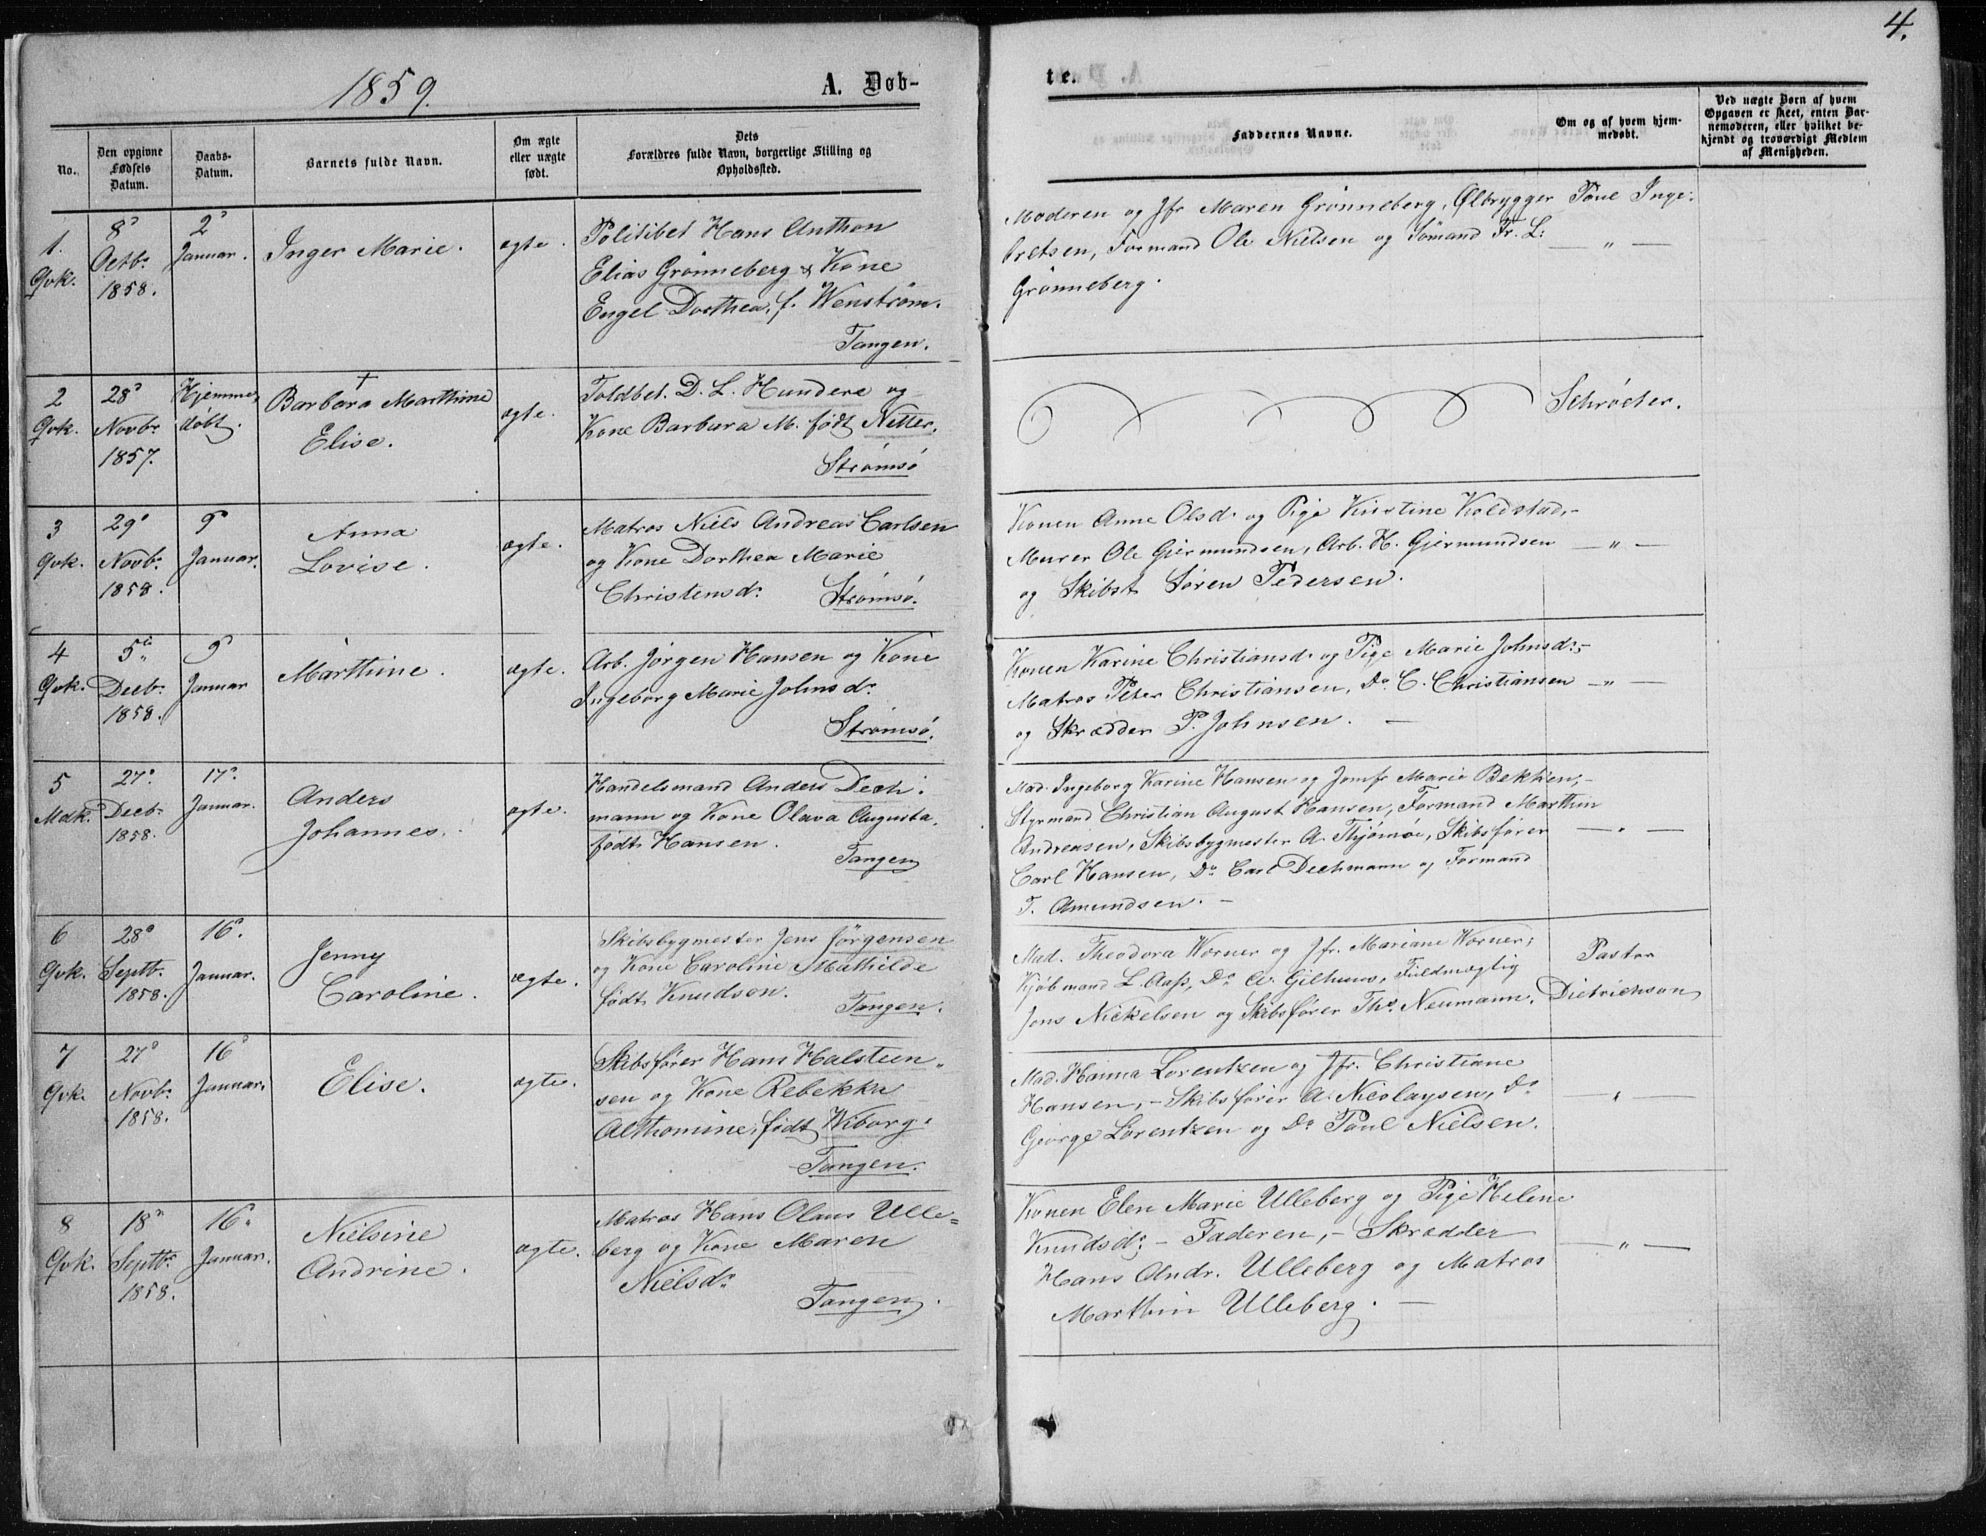 4.
1859.
A. Døb-
te.
No.
Den opgivne
Fødsels
Datum.
Daabs-
Datum.
Barnets fulde Navn.
Om ægte
eller uægte
født.
Dets
Forældres fulde Navn, borgerlige Stilling og
Opholdssted.
Faddernes Navne.
Om og af hvem hjem-
medøbt.
Ved uægte Børn af hvem
Opgaven er skeet, enten Bar-
nemoderen, eller hvilket be-
kjendt og troværdigt Medlem
af Menigheden.
1.
Qvk.
8
Octbr
1858.
2
Januar.
Inger Marie.
ægte.
Politibet Hans Anthon
Elias Grønneberg & Kone
Engel Dorthea, f. Wenstrøm.
Tangen.
Moderen og Jfr Maren Grønneberg, Ølbrygger Poul Inge-
bretsen, Formand Ole Nielsen og Sömand Fr. L:
Grønneberg.
— „ —
2
Qvk.
28
Novbr
1857.
Hjemme
døbt.
†
Barbara Marthine
Elise.
ægte.
Toldbet. D. L. Hundere og
Kone Barbara M. født Nitter.
Strømsö
Schrøeter.
3
Qvk.
29
Novb.
1858.
9
Januar.
Anna
Lovise.
ægte.
Matros Niels Andreas Carlsen
og Kone Dorthea Marie
Christensdr Strømsö.
Konen Anne Olsdr og Pige Kirstine Koldstad,-
Murer Ole Gjermundsen, Arb. H. Gjermundsen
og Skibst Søren Pedersen.
— „ —
4
Qvk.
5
Decbr
1858.
9
Januar
Marthine.
ægte.
Arb. Jørgen Hansen og Kone
Ingeborg Marie Johnsdr
Strømsö.
Konen Karine Christiansdr og Pige Marie Johnsdr,-
Matros Peter Christiansen, Do C. Christiansen
og Skrædder P. Johnsen. —
— „ —
5
Mdk.
27
Decbr
1858.
17
Januar.
Anders
Johannes.
ægte.
Handelsmand Anders Dech-
mann og Kone Olava Augusta,
født Hansen. Tangen
Mad. Ingeborg Karine Hansen og Jomfr Marie Bekken,-
Styrmand Christian August Hansen, Formand Marthin
Andreasen, Skibsbygmester A. Thjømøe, Skibsfører
Carl Hansen, Do Carl Dechmann og Formand
T. Amundsen. —
— „ —
6
Qvk.
28
Septbr
1858.
16
Januar.
Jenny
Caroline.
ægte.
Skibsbygmester Jens Jørgensen
og Kone Caroline Mathilde
født Knudson. Tangen.
Mad. Theodora Wörner og Jfr. Mariane Wörner,
Kjøbmand L. Aass, Do A. Gilhuus, Fuldmægtig
Jens Nickelsen og Skibsfører Ths Neumann.
Pastor
Dietrichson
7
Qvk.
27
Novbr
1858.
16
Januar.
Elise.
ægte.
Skibsfører Hans Halsteen-
sen og Kone Rebekka
Althomine, født Wiborg.
Tangen.
Mad. Hanna Lorentzen og Jfr. Christiane
Hansen, — Skibsfører A. Nicolaysen, Do
George Lorentzen og Do Poul Nielsen.
— „ —
8
Qvk.
18
Septbr
1858.
16
Januar.
Nielsine
Andrine.
ægte.
Matros Hans Olaus Ulle-
berg og Kone Maren
Nielsdr
Tangen.
Konen Elen Marie Ulleberg og Pige Helene
Knudsdr — Faderen, — Skrædder
Hans Andr. Ulleberg og Matros
Marthin Ulleberg. —
— „ —